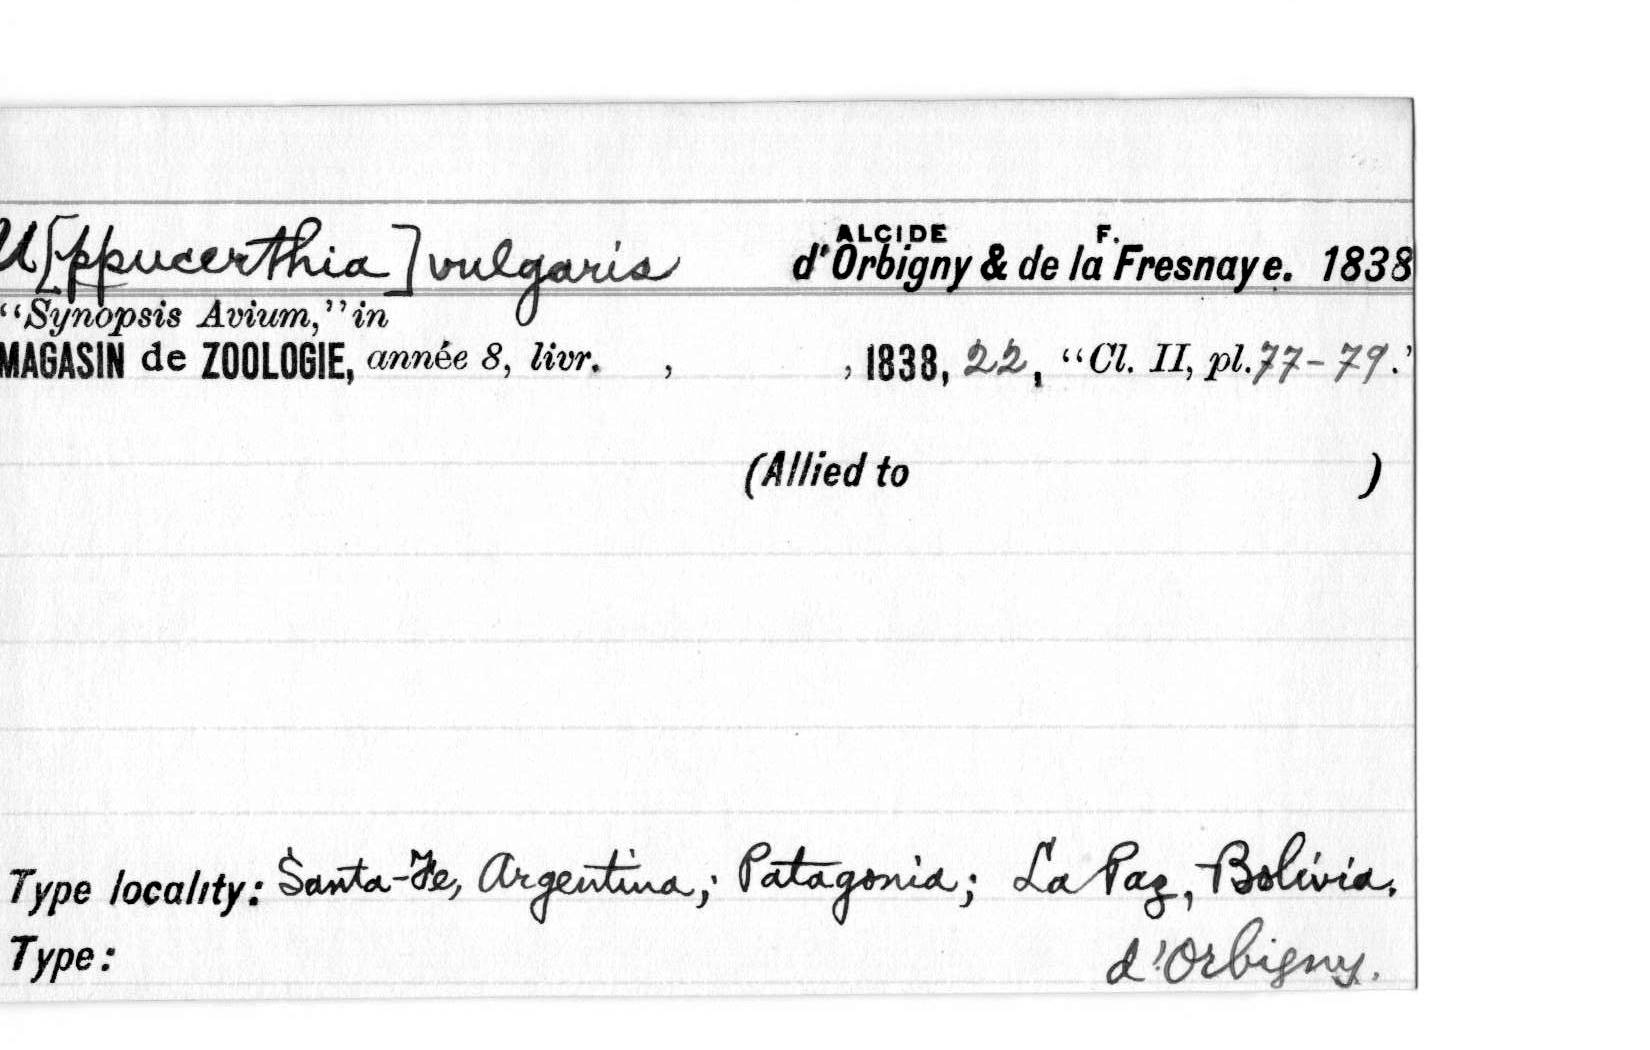 U[ppucerthia] vulgaris ALCIDE d'Orbigny & de la F. Fresnaye. 1838
“Synopsis Avium,” in
MAGASIN de ZOOLOGIE, année 8, livr. , , 1838, 22, “Cl. II, pl. 77-79.”
(Allied to )
Type locality: Santa-Fe, Argentina; Patagonia; La Paz, Bolivia.
Type: d'Orbigny.